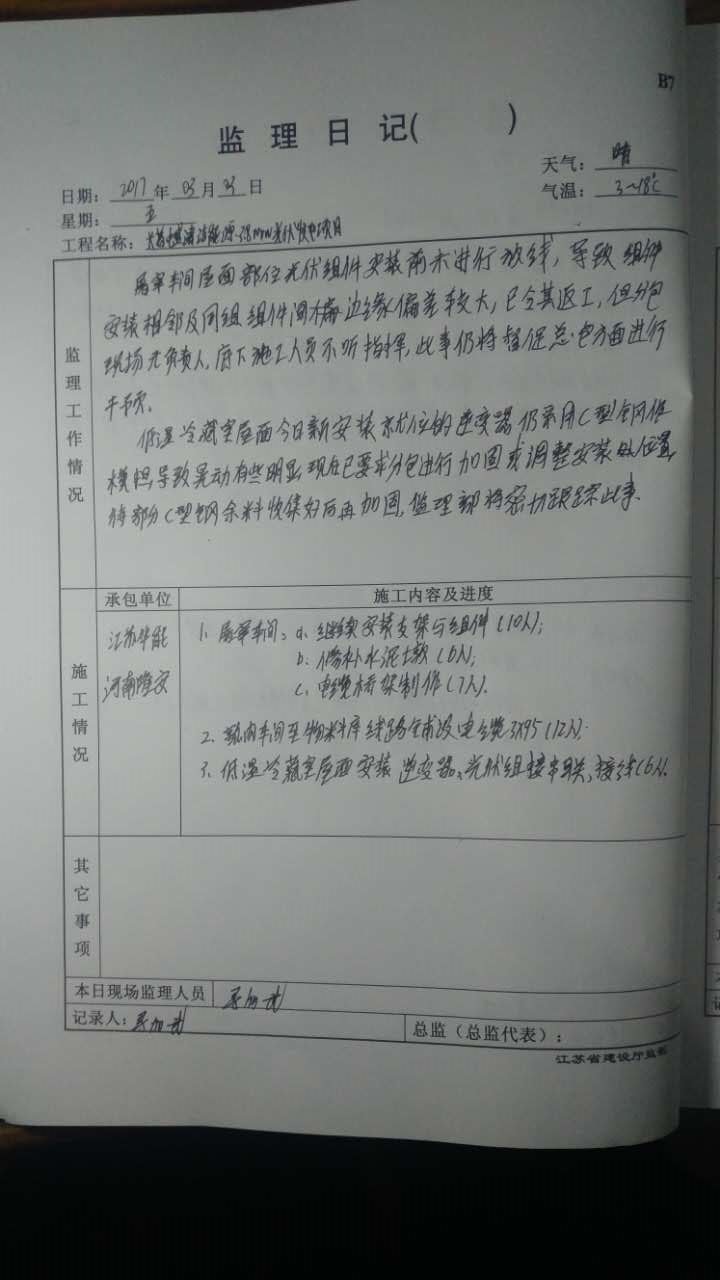 B7
监 理 日 记( )
天气: 晴
日期: 2017 年 03 月 03 日
气温: 3~18℃
星期: 五
工程名称: 清洁能源 38MW光伏发电项目
监理工作情况
屠宰车间屋面部位光伏组件安装前未进行放线, 导致组件
安装相邻及同组组件间横边缘偏差较大, 已令其返工, 但分包
现场无负责人, 底下施工人员不听指挥, 此事仍将督促总包方面进行
干预.
低温冷藏室屋面今日新安装就位的逆变器仍采用C型钢作
横担, 导致晃动有些明显, 现在已要求分包进行加固或调整安装的位置,
待部分C型钢余料收集好后再加固, 监理部将密切跟踪此事.
施工情况
承包单位 施工内容及进度
江苏华能
河南隆安
1. 屠宰车间: a. 继续安装支架与组件 (10人);
b. 修补水泥墩 (6人);
c. 电缆桥架制作 (7人).
2. 车间至物料库线路铺设电缆3X95 (12人).
3. 低温冷藏室屋面安装逆变器、光伏组接串联, 接线(6人).
其它事项
本日现场监理人员
记录人:
总监(总监代表):
江苏省建设厅监